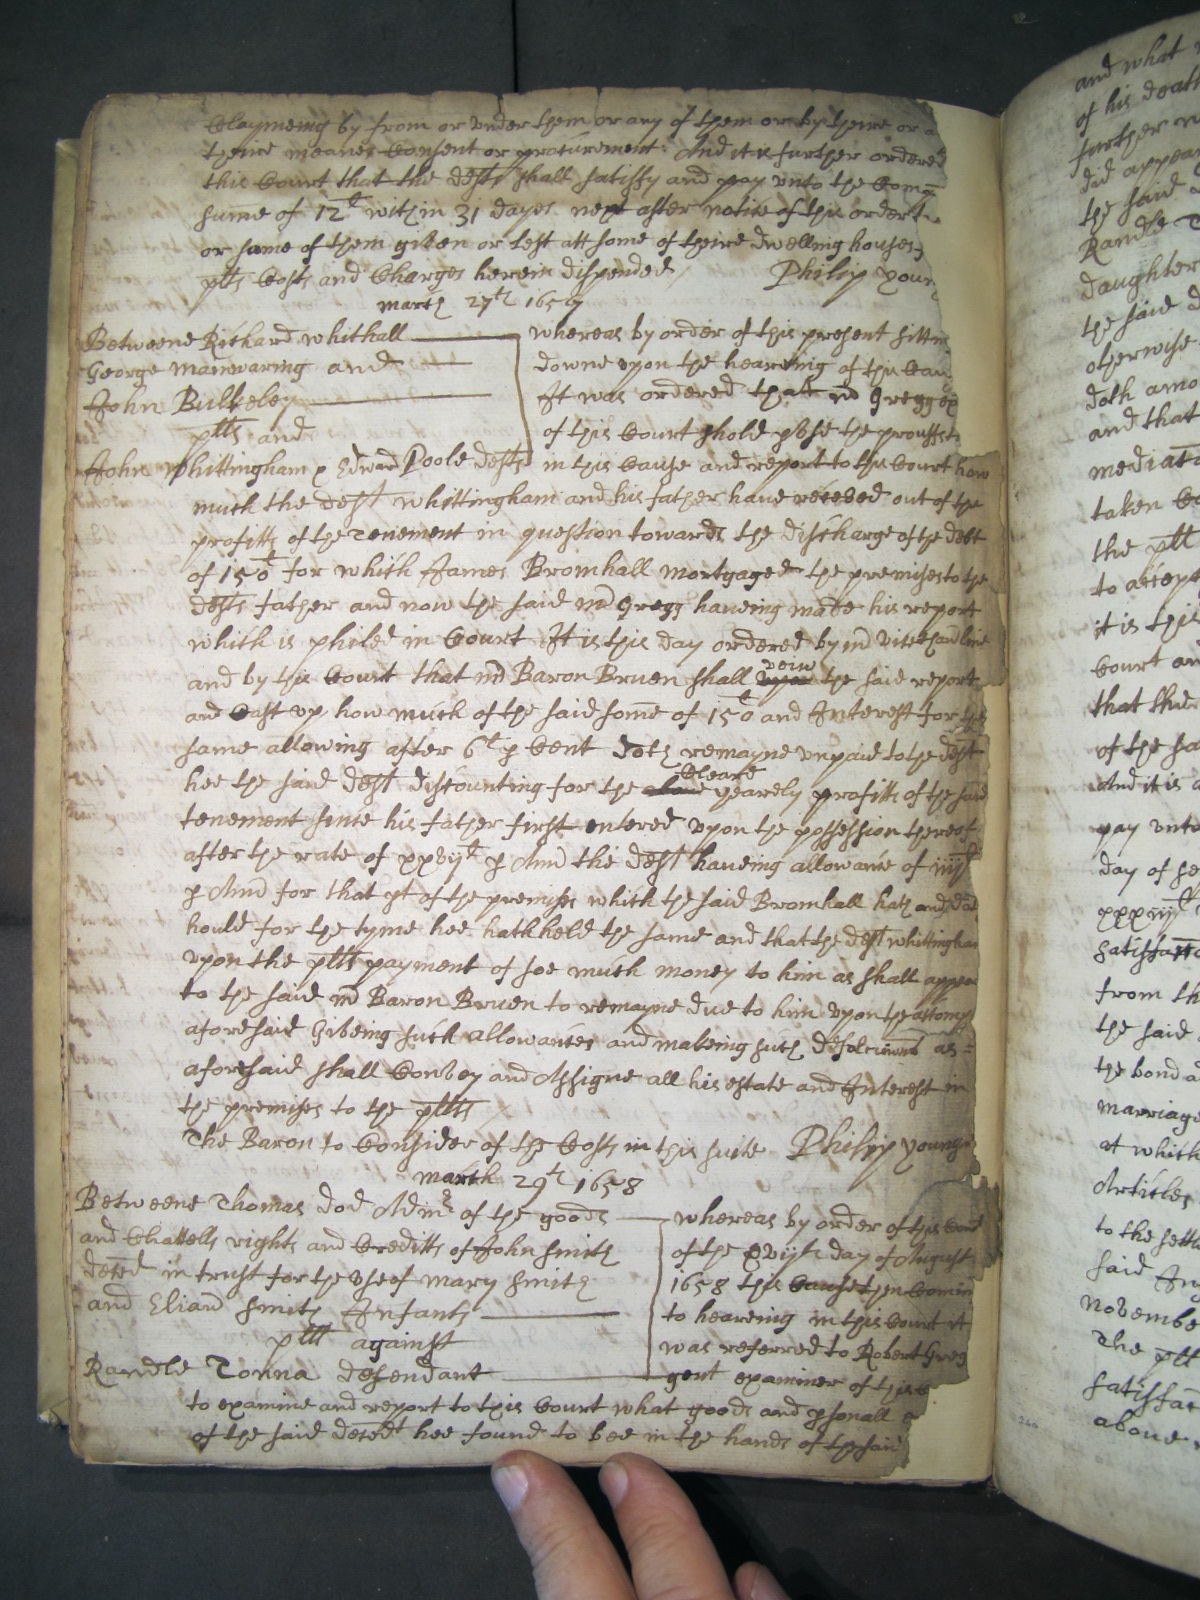 Claymeing by from or under them or any of them or by theire or a
theire meanes Consent or procurement And it is further ordered
this Court that the defts shall satisfy and pay unto the Comp
sume of 12l within 31 dayes next after notice of this order
or some of them given or left att some of theire dwelling houses
plts Costs and Charges herein dispended Philip Youn
March 27th 1657
Betweene Richard Whithall
George Mainwaring and
John Bulkeley
plts and
John Whittingham p Edward Poole defts
whereas by order of this present sittin
downe upon the hearing of this Cau
It was ordered that mr Gregg ex
of this Court shold pvse the prouffs
in this Cause and report to this Court how
much the deft Whittingham and his father have receved out of the
profitts of the Tenement in question towards the discharge of the debt
of 150l for which James Bromhall mortgaged the premises to the
defts father and now the said mr Gregg haveing made his report
which is philed in Court It is this day ordered by mr
and by this Court that mr Baron Bruen shall veiw the said report
and Cast up how much of the said some of 150l and Interest for the
same allowing after 6l p Cent doth remayne unpaid to the deft
hee the said deft discounting for the Cleare yearely profitts of the said
tenement since his father first entered upon the possession thereof
after the rate of xxvijl p Ann the deft haveing allowance of iiijl
p Ann for that pt of the premises which the said Bromhall hath and did
hould for the tyme hee hath held the same and that the deft Whittingham
upon the pltts payment of soe much money to him as shall appea
to the said mr Baron Bruen to remayne due to him upon the accomp
aforesaid Giveing such allowances and makeing such defalcions as =
aforesaid shall Convey and Assigne all his estate and Interest in
the premises to the pltts
The Baron to Consider of the Costs in this suite Philip Younge
march 29th 1658
Betweene Thomas Dod Admr of the goods
and Chattells rights and Creditts of John Smith
deced in trust for the use of Mary Smith
and Smith Infants
pltt against
Randle Tonna defendant
whereas by order of this Court
of the xviijth day of August
1658 this Cause then Comin
to heareing in this Court it
was referred to Robert Greg
gent examiner of this C
to examine and report to this Court what goods and psonall
of the said deced hee found to bee in the hands of the said
and what
of his death
further
did appear
the said
Randle T
daughter
the said d
otherwise
doth amo
and that
mediati
taken
the pltt
to accept
it is this
Court an
that the
of the sa
And it is
pay unto
day of se
xxxiijl
satisfact
from th
the said
the bond a
marriage
at which
Articles
to the settl
said In
Novembe
The pltt
satisfac
above